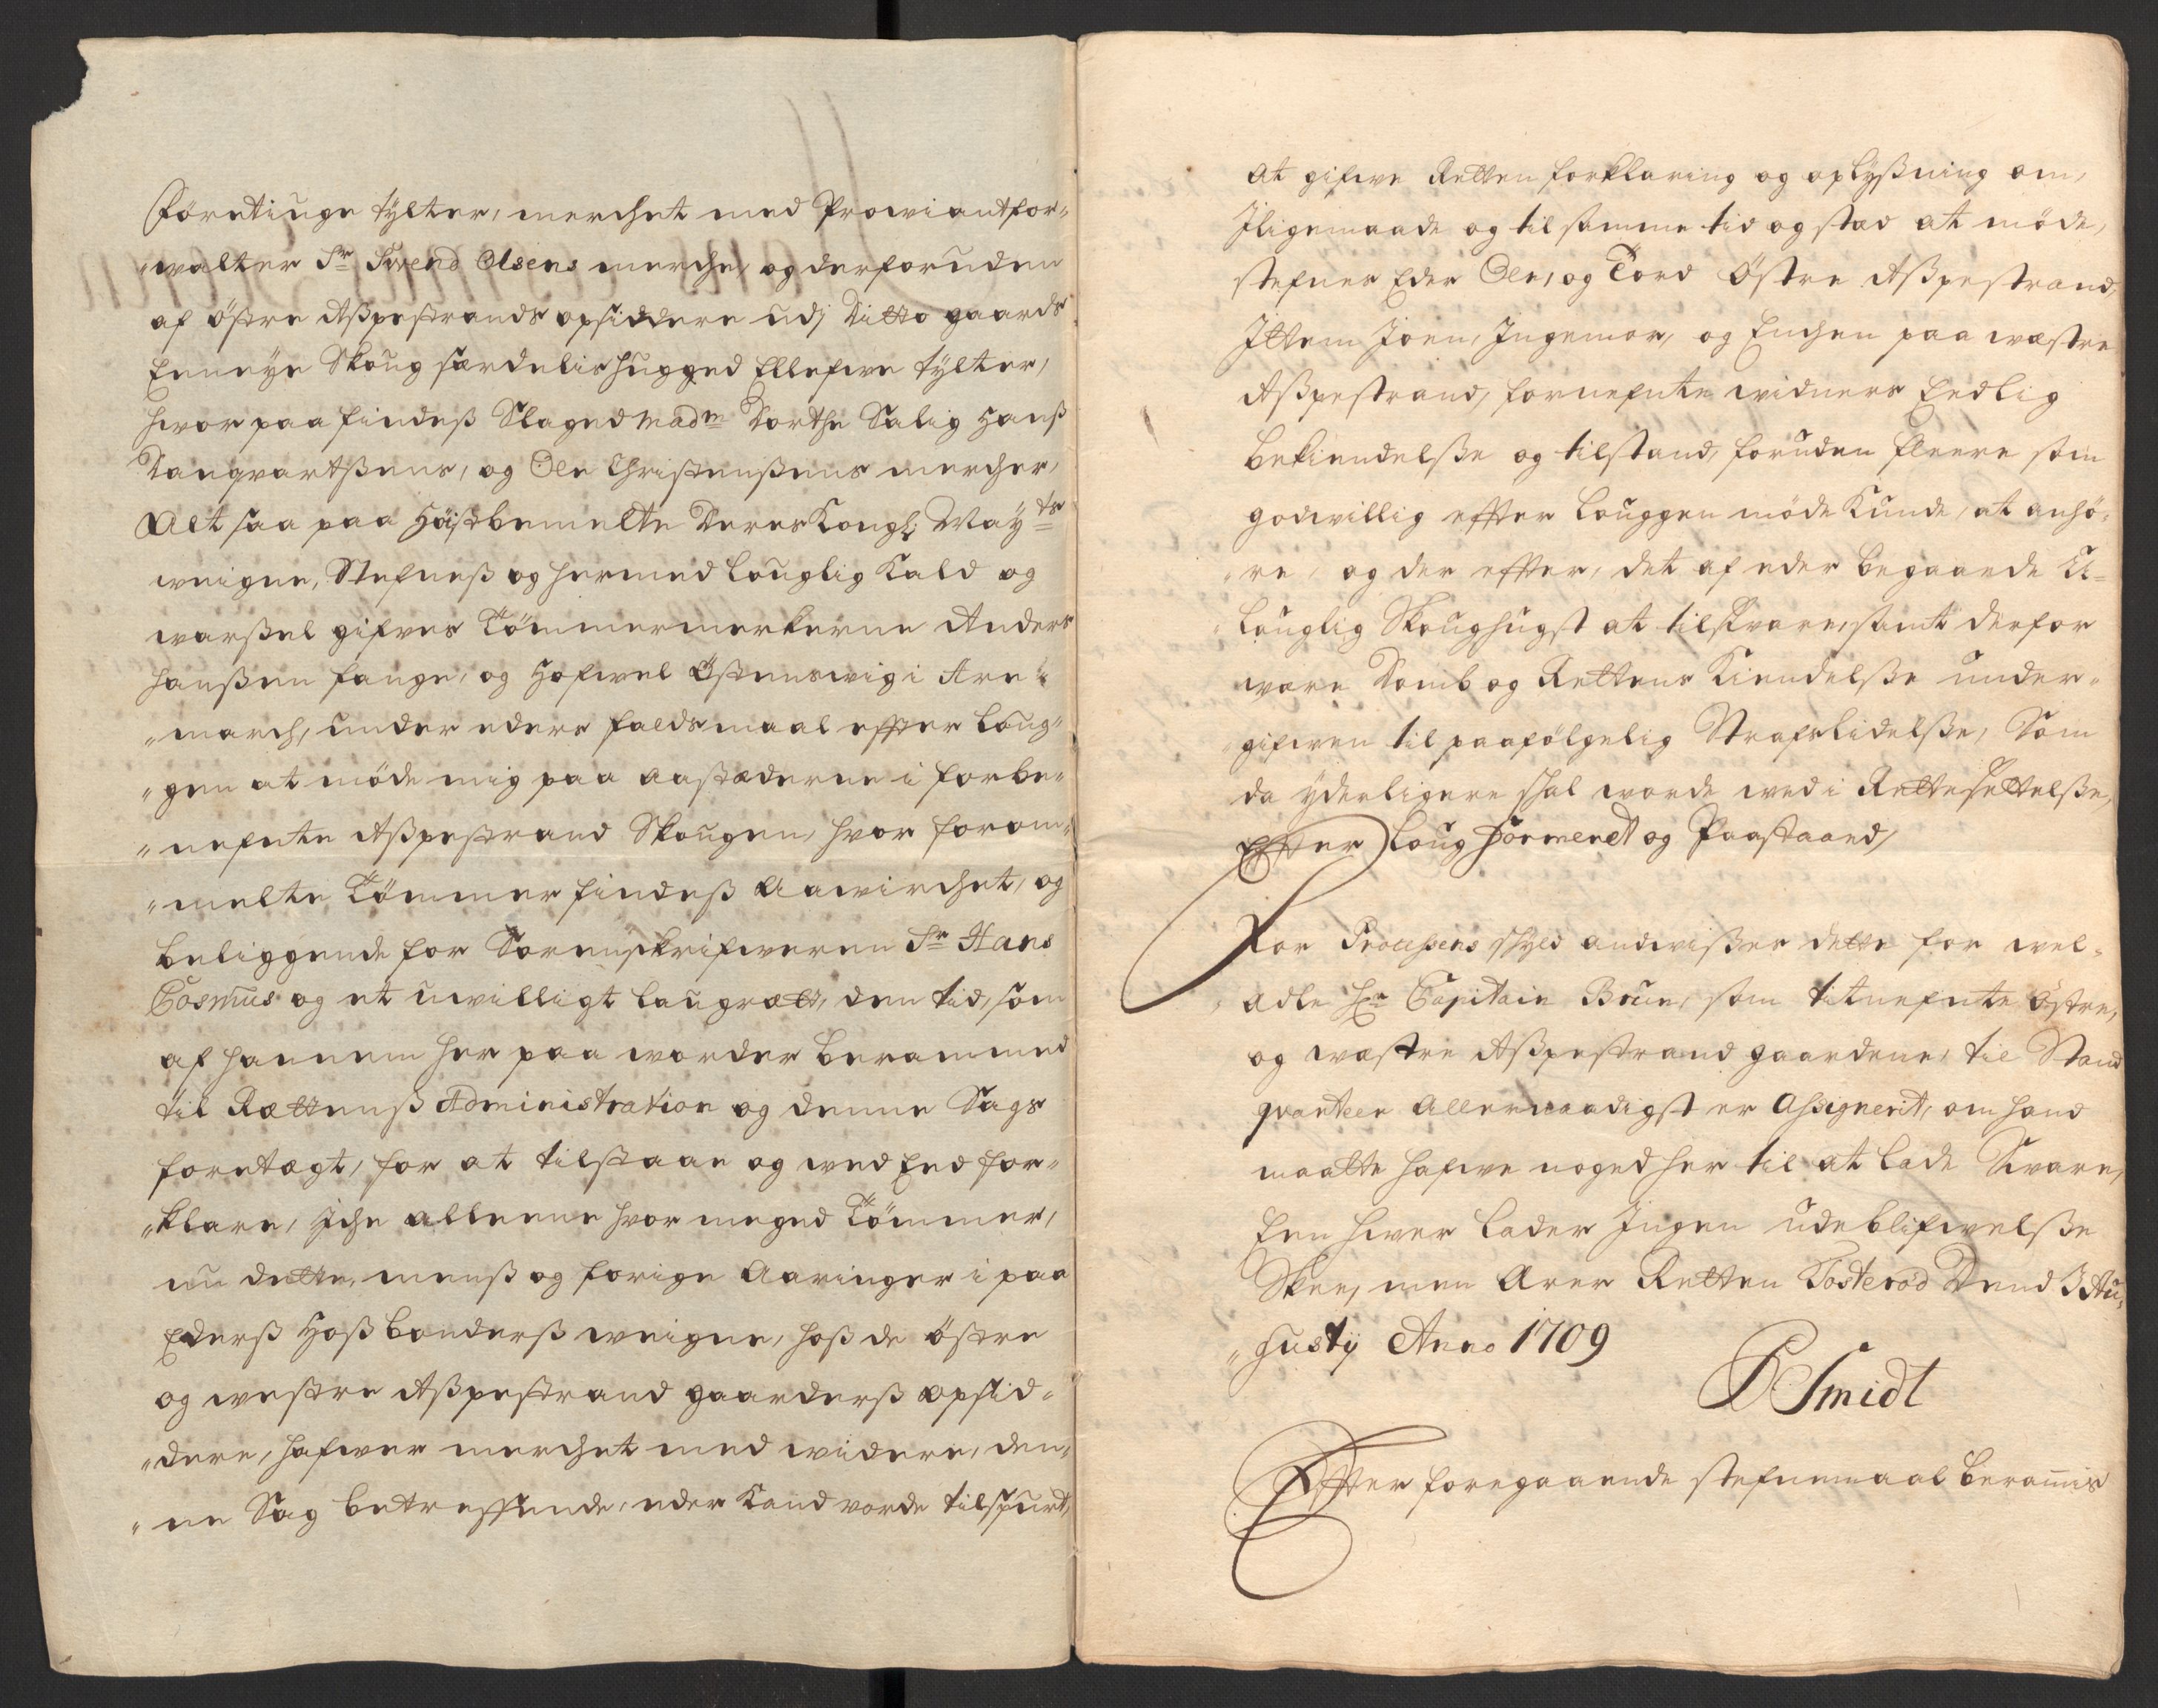 Företiuge tylter, merchet med Proviantfor-
„walter Sr Swend Olsens merche, og derforuden
af östre Aßpestrands opsiddere udj Ditto gaards
Enneÿe Skoug særdelis hugged Ellefwe tÿlter,
hvor paa findeß Slaged Madm Dorthe Salig Hanß
Danqvartßens, og Ole Christenßens mercher,
Alt saa paa Höÿstbemelte Deres Kongl: Maÿtz
weigne, Stefneß og hermed louglig Kald og
warßel gifves Tömmermerkerne Anders
Hanßen fange, og Hofwel Östenswig i Are-
„march, under eders faldsmaal effter loug-
„gen at möde mig paa aastæderne i forbe-
„nefnte Aßpestrand Skougen, hvor forom-
„melte Tömmer findeß Aawirchet, og
beliggende for Sorenskrifweren Sr Hans
Cosmus og et uwilligt laugrætt, den tid, som
af hannem her paa worder berammed
til Rættenß Administration og denne Sags
foretagt, for at tilstaae og wed Eed for-
„klare, iche alleene hvor meged Tömmer,
nu dette, menß og forige Aaringer i paa
Ederß Hoßbonderß weigne, hoß de östre
og westre Aßpestrand gaarderß opsid-
„dere, hafwer merchet med widere, den-
„ne Sag betreffende, eder Kand vorde tilspurt,
at gifwe Retten forklaring og oplÿßning om,
Iligemaade og til samme tid og stad at möde,
stefnes Eder Ole, og Tord Östre Aßpestrand,
Ittem Joen, Ingemor, og Enchen paa wæstre
Aßpestrand, fornefnte widners Eedlig
bekiendelße og tilstand, foruden fleere som
godwillig effter louggen möde Kunde, at anhö-
„re, og der effter, det af eder begaaende U-
„louglig Skoughugst at tilsvare, samt derfor
ware Domb og Rettens Kiendelße under-
„gifwen til paafölgelig Strafs lidelße, Som
da ÿderligere skal worde wed i Rettesettelße,
Effter loug formeret og Paastaaed,
For Processens skÿld andwißer dette for wel-
„adle Hr Capitain Brun, som titnefnte östre,
og wæstre Aßpestrand gaardene, til Stand
qvarteer Allernaadigst er Assignerit, om hand
maatte hafwe noged her til at lade Svare,
Een hwer lader Ingen udeblifwelße
Skee, men Ærer Retten Tosterød Dend 3 Au-
„gustÿ Anno 1709
Smidt
Effter foregaaende stefnemaal beramis